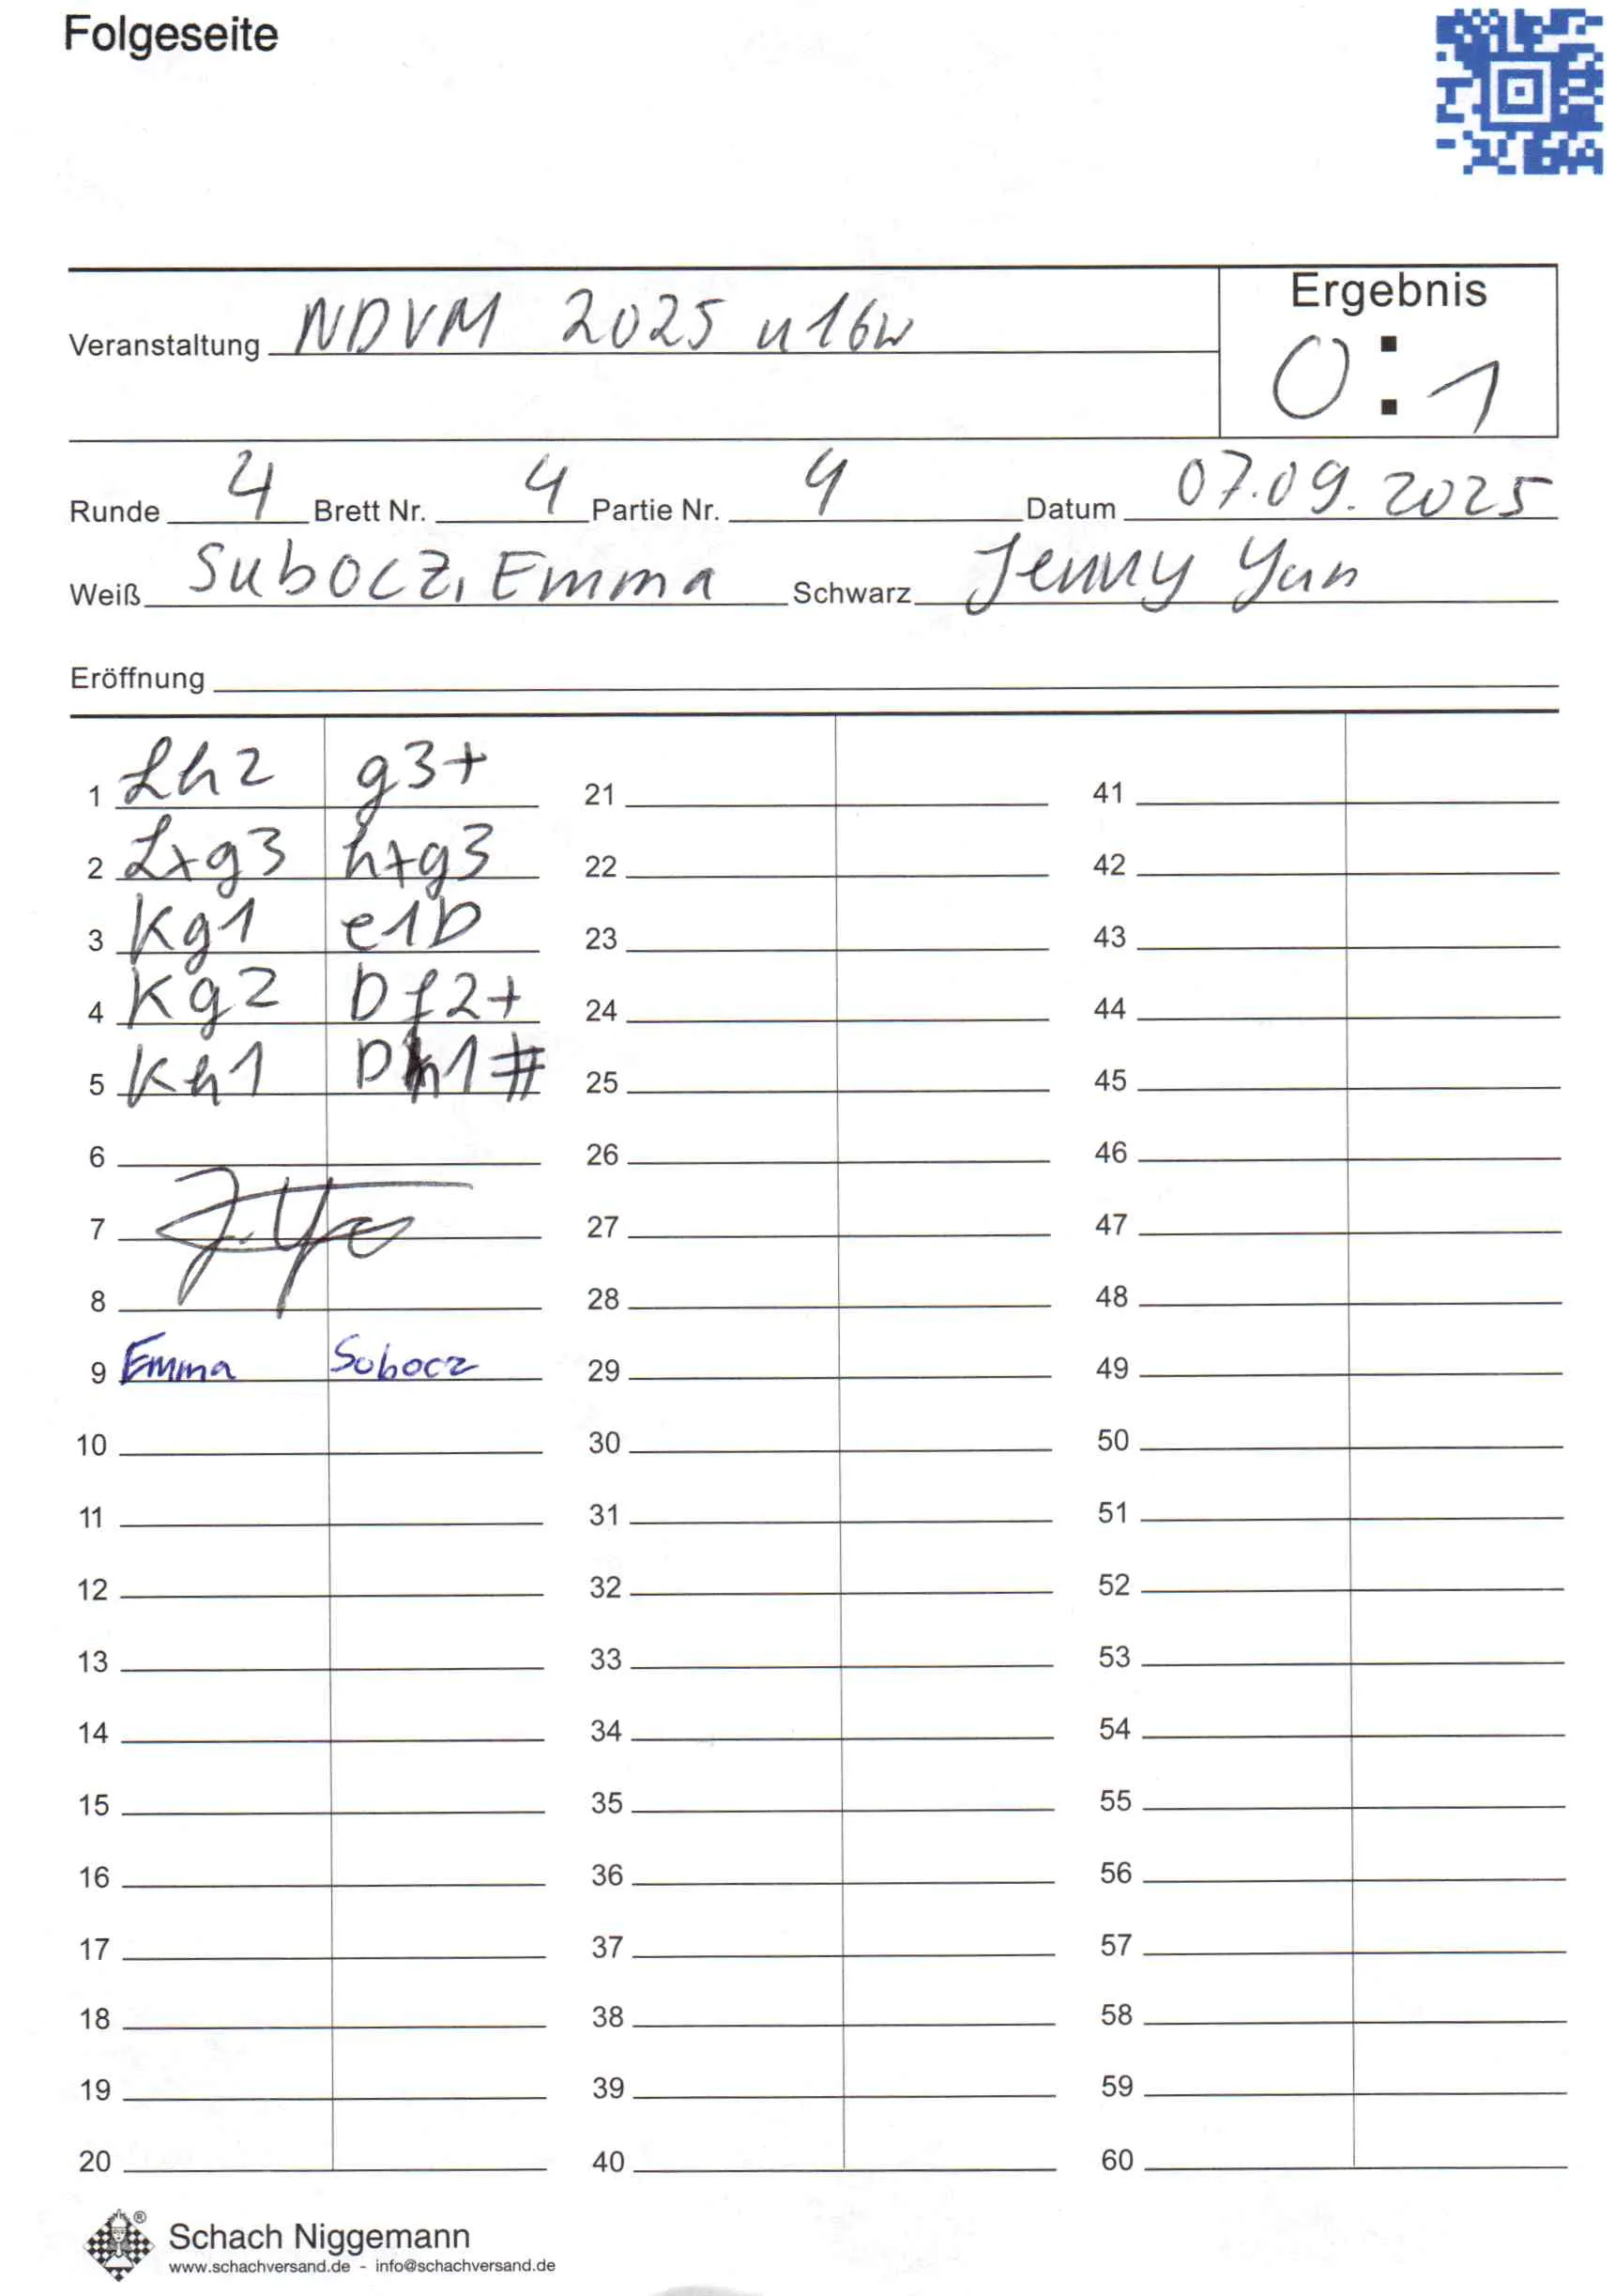 Folgeseite
Ergebnis
Veranstaltung NDVM 2025 u16w
0:1
Runde 4 Brett Nr. 4 Partie Nr. 4 Datum 07.09.2025
Weiß Subocz, Emma Schwarz Jenny Yun
Eröffnung
1 Lh2 g3+
2 Lxg3 hxg3
3 Kg1 e1D
4 Kg2 Df2+
5 Kh1 Dh1#
6
7
8
9 Emma Subocz
10
11
12
13
14
15
16
17
18
19
20
21
22
23
24
25
26
27
28
29
30
31
32
33
34
35
36
37
38
39
40
41
42
43
44
45
46
47
48
49
50
51
52
53
54
55
56
57
58
59
60
Schach Niggemann
www.schachversand.de - info@schachversand.de